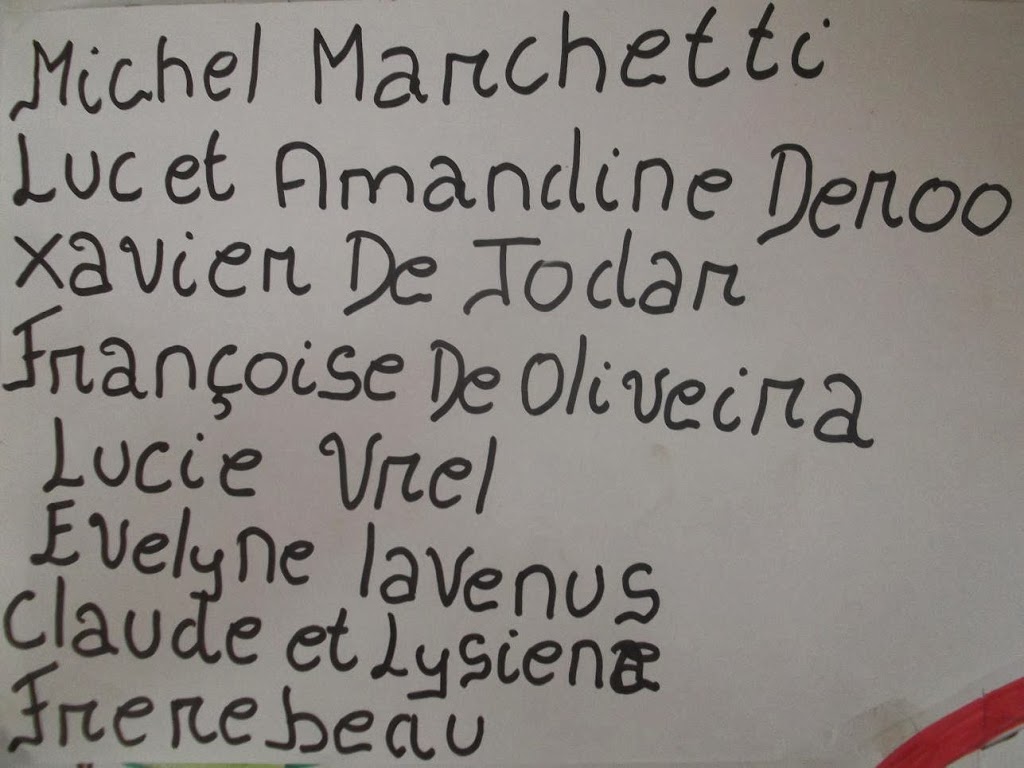 Michel Marchetti
Luc et Amandine Deroo
Xavier De Jodar
Françoise De Oliveira
Lucie Vrel
Evelyne lavenus
Claude et Lysiene
Frerebeau